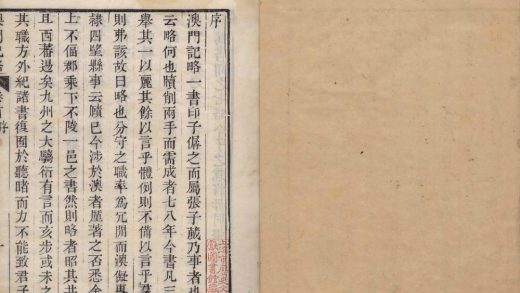 序
澳門記略一書印子僻之而屬張子蕆乃事者也
云略何也牘削兩手而需成者七八年今書凡三
舉其一以麗其餘以言乎體例則不備以言乎
則弗該故曰略也分守之職奉為冗閒而澳儗事
隸四望縣事云顧已今涉於澳者厪著之否悉
上不偪郡乘下不陵一邑之書然則略者昭其
且西蕃邊矣九州之大騶衍有言而亥步或未之
其職方外紀諸書復囿於聽睹而力不能致君子